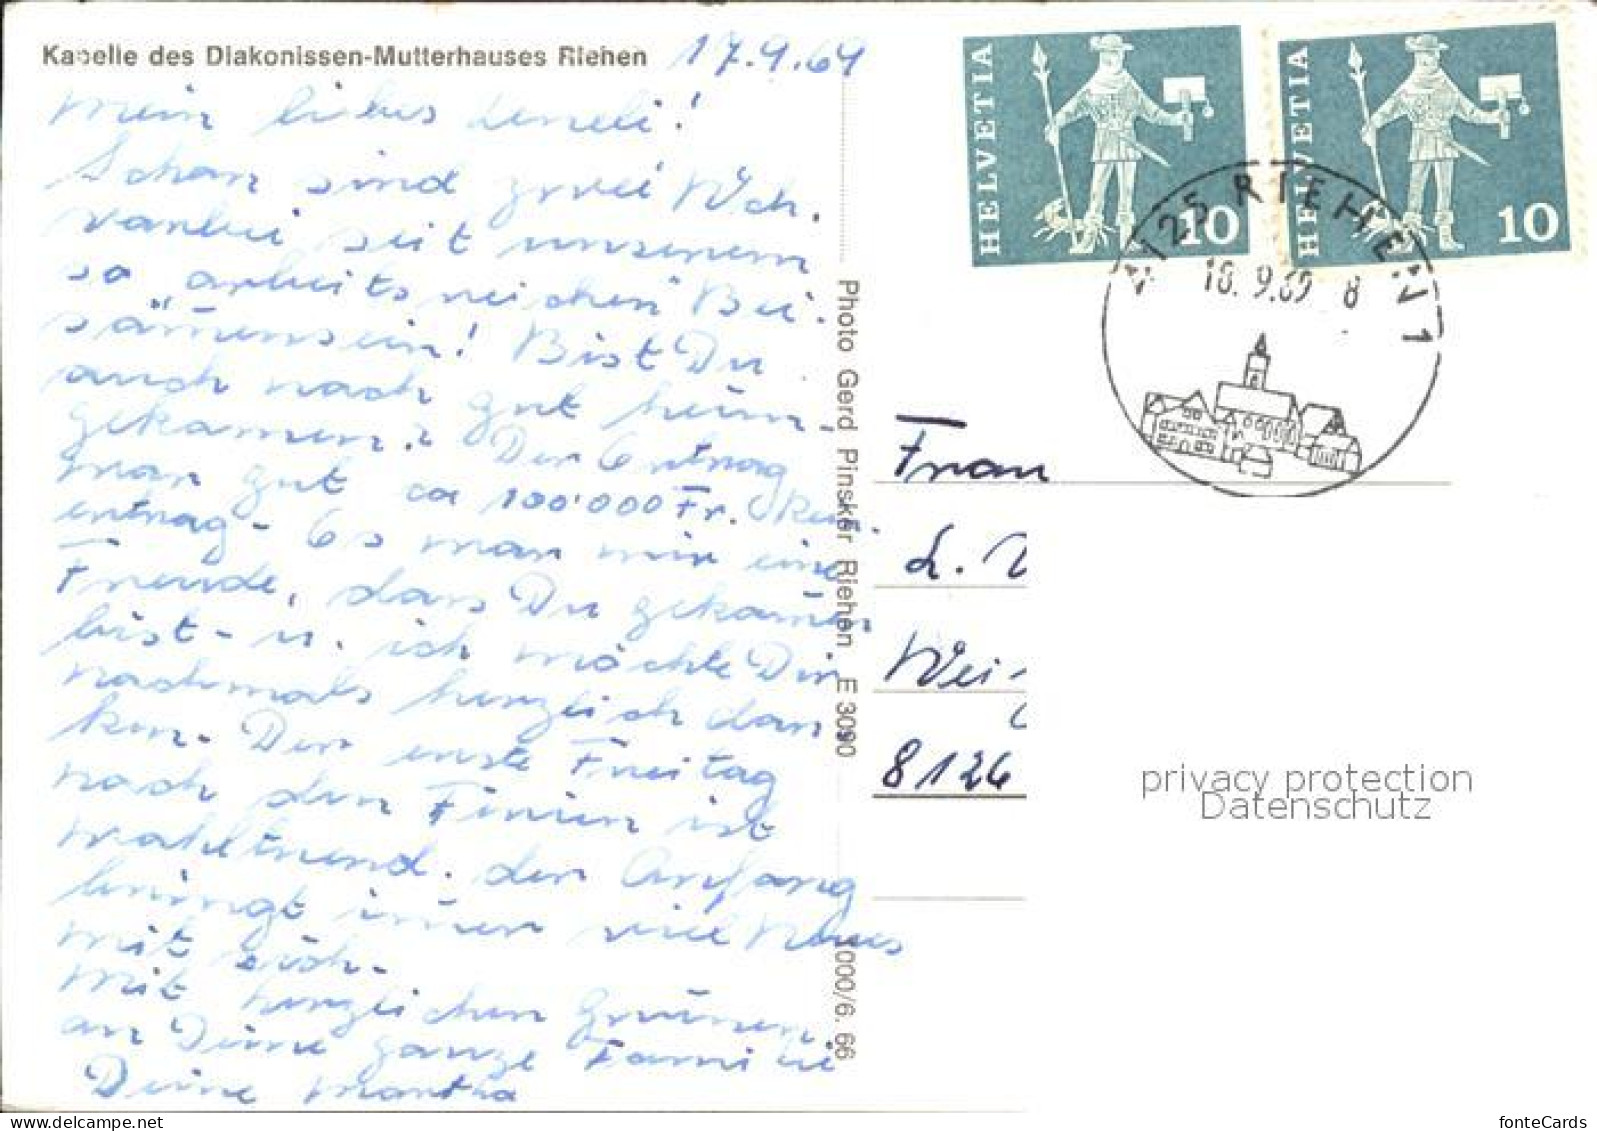 Kapelle des Diakonissen-Mutterhauses Riehen
17.9.69
Mein liebes Leneli!
Schon sind zwei Woch.
vorbei seit unserem
so arbeitsreichen Bei-
sam̄ensein! Bist Du
auch noch gut heim-
gekom̄en? Der Ertrag
war gut ca 100'000 Fr.
ertrag - Es war mir eine
Freude, dass Du gekom̄en
bist - u. ich möchte Dir
nochmals herzlich dan
ken. Der erste Freitag
nach den Ferien ist
wohltuend. der Anfang
bringt im̄er viel Neues
mit sich.
Mit herzlichen Grüssen
an Deine ganze Familie
Deine Martha
Photo Gerd Pinsker Riehen E 3090
000/6. 66
HELVETIA
10
HELVETIA
10
4125 RIEHEN 1
18. 9.69 8
Frau
L.
Wei
8126
privacy protection
Datenschutz
fonteCards